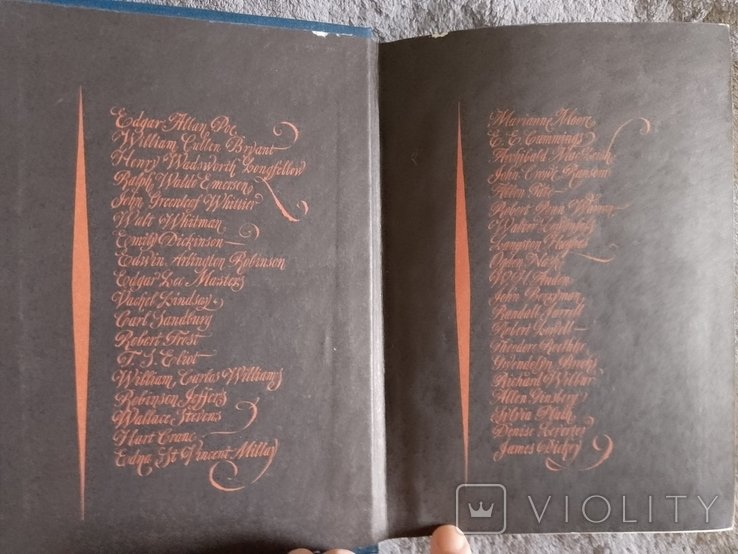 Edgar Allan Poe
William Cullen Bryant
Henry Wadsworth Longfellow
Ralph Waldo Emerson
John Greenleaf Whittier
Walt Whitman
Emily Dickinson
Edwin Arlington Robinson
Edgar Lee Masters
Vachel Lindsay
Carl Sandburg
Robert Frost
T. S. Eliot
William Carlos Williams
Robinson Jeffers
Wallace Stevens
Hart Crane
Edna St Vincent Millay
Marianne Moore
E. E. Cummings
Archibald MacLeish
John Crowe Ransom
Allen Tate
Robert Penn Warren
Walter Lowenfels
Langston Hughes
Ogden Nash
W. H. Auden
John Berryman
Randall Jarrell
Robert Lowell
Theodore Roethke
Gwendolyn Brooks
Richard Wilbur
Allen Ginsberg
Sylvia Plath
Denise Levertov
James Dickey
VIOLITY